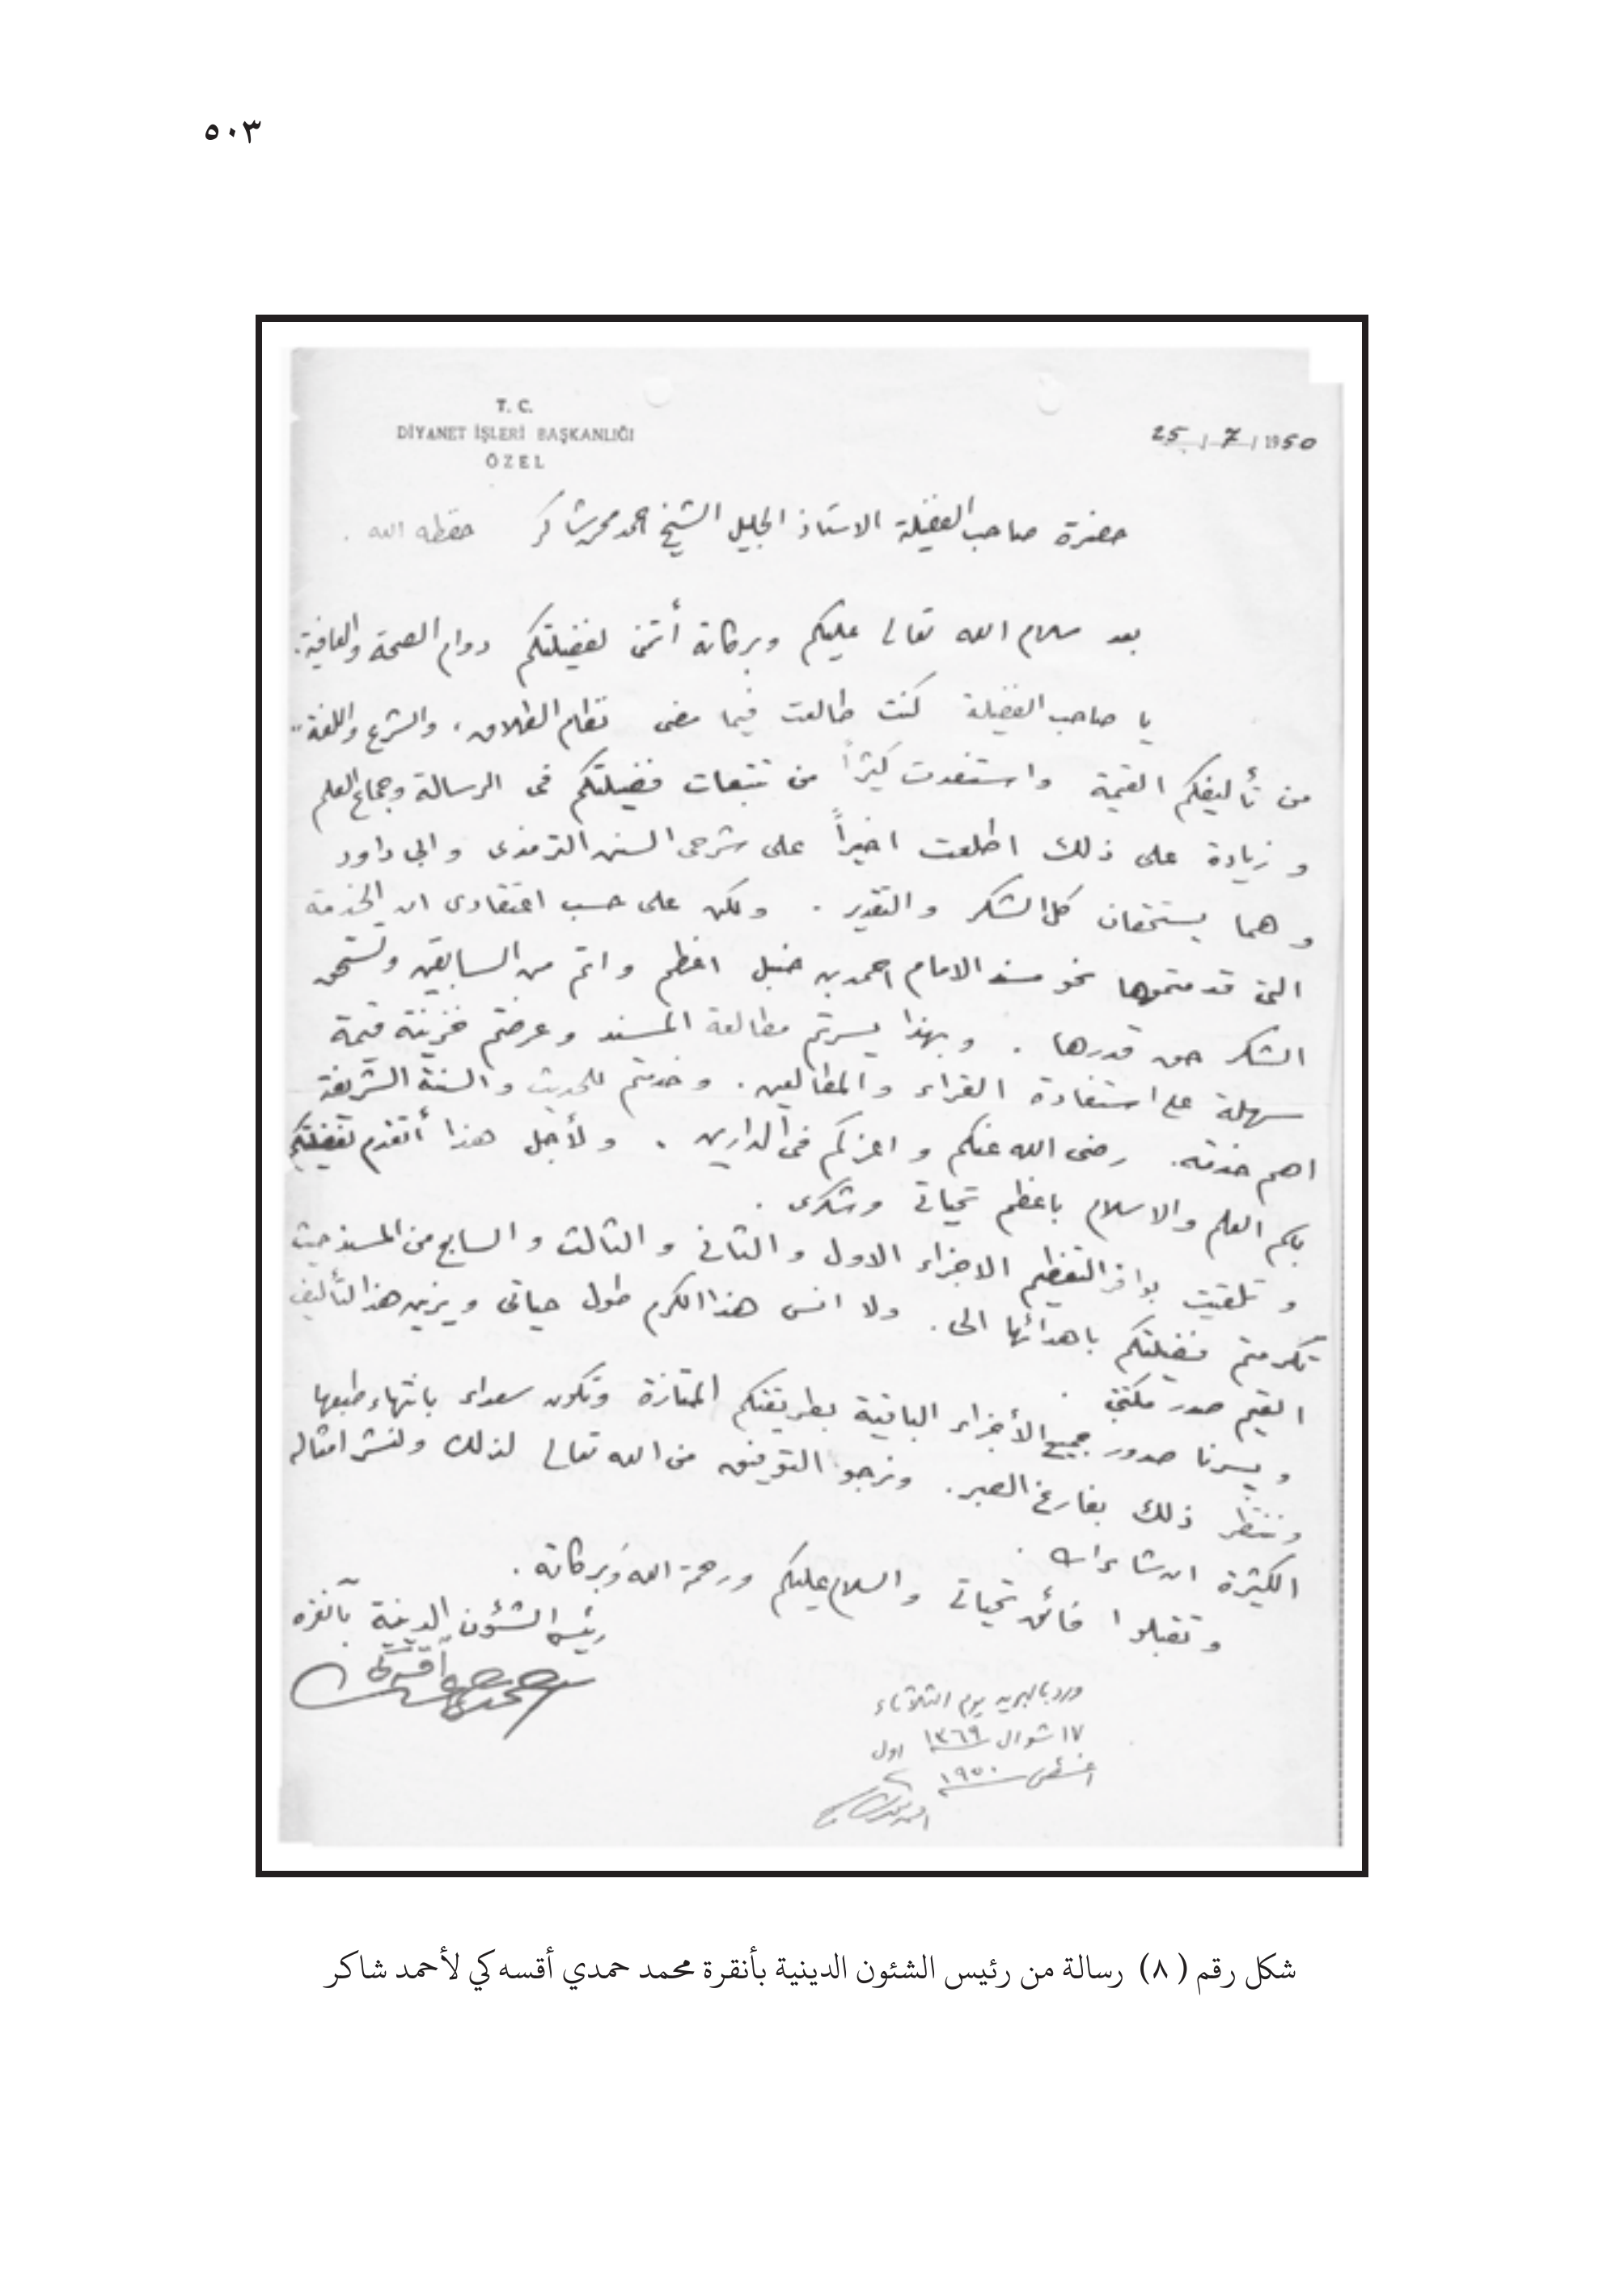 ٥٠٣
T. C.
DİYANET İŞLERİ BAŞKANLIĞI
ÖZEL
25 / 7 / 1950
حضرة صاحب الفضيلة الاستاذ الجليل الشيخ احمد محمد شاكر حفظه الله .
بعد سلام الله تعالى عليكم وبركاته أتمنى لفضيلتكم دوام الصحة والعافية .
يا صاحب الفضيلة كنت طالعت فيما مضى نظام الطلاق ، والشرع واللغة "
من تأليفكم القيمة واستفدت كثيراً من تتبعات فضيلتكم فى الرسالة وجماع العلم
و زيادة على ذلك اطلعت اخيراً على شرحى السنن الترمذى و ابى داود
و هما يستحقان كل الشكر و التقدير . ولكن على حسب اعتقادى ان الخدمة
التى قدمتموها نحو مسند الامام احمد بن حنبل اعظم و اتم من السابقين وتستحق
الشكر حق قدرها . و بهذا يسرتم مطالعة المسند و عرضتم خزينة قيمة
سهلة على استفادة القراء و المطالعين . و خدمتم للحديث و السنة الشريفة
اهم خدمة . رضى الله عنكم و اعزكم فى الدارين . و لأجل هذا أتقدم لفضيلتكم
باسم العلم والاسلام باعظم تحياتى وشكرى .
و تلقيت بوافر التعظيم الاجزاء الاول و الثانى و الثالث و السابع من المسند حيث
تكرمتم فضيلتكم باهدائها الى . ولا انسى هذا الكرم طول حياتى و يزين هذا التأليف
القيم صدر مكتبتى .
و يسرنا صدور جميع الأجزاء الباقية بطريقتكم الممتازة ونكون سعداء بانتهاء طبعها
وننتظر ذلك بفارغ الصبر . ونرجو التوفيق من الله تعالى لذلك ولنشر امثاله
الكثيرة ان شاء الله .
و تقبلوا فائق تحياتى والسلام عليكم ورحمة الله وبركاته .
رئيس الشؤون الدينية بآنقره
أقسكى
ورد بالبريد يوم الثلاثاء
١٧ شوال ١٣٦٩ اول
اغسطس ١٩٥٠
احمد محمد شاكر
شكل رقم ( ٨ ) رسالة من رئيس الشئون الدينية بأنقرة محمد حمدي أقسه كي لأحمد شاكر